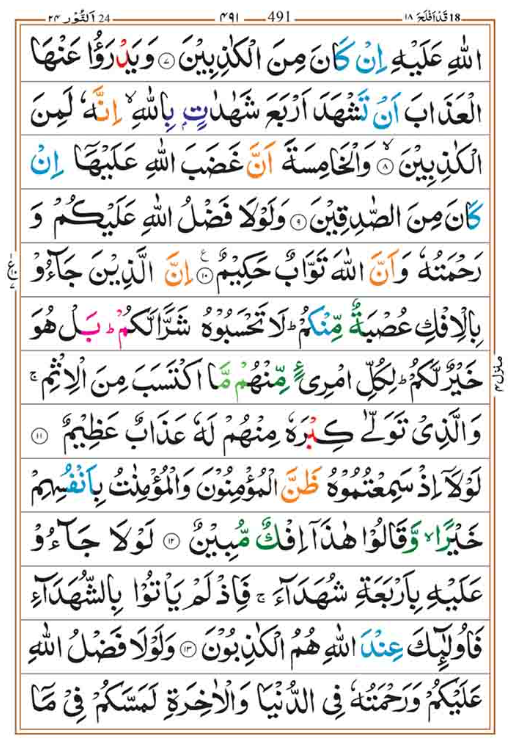 18 قَدْ اَفْلَحَ ١٨ — 491 — ٤٩١ — 24 اَلنُّوْر ٢٤
اللّٰهِ عَلَيْهِ اِنْ كَانَ مِنَ الْكٰذِبِيْنَ ۝٧ وَيَدْرَؤُا عَنْهَا
الْعَذَابَ اَنْ تَشْهَدَ اَرْبَعَ شَهٰدٰتٍۭ بِاللّٰهِ ۙ اِنَّهٗ لَمِنَ
الْكٰذِبِيْنَ ۙ۝٨ وَالْخَامِسَةَ اَنَّ غَضَبَ اللّٰهِ عَلَيْهَاۤ اِنْ
كَانَ مِنَ الصّٰدِقِيْنَ ۝٩ وَلَوْلَا فَضْلُ اللّٰهِ عَلَيْكُمْ وَ
رَحْمَتُهٗ وَاَنَّ اللّٰهَ تَوَّابٌ حَكِيْمٌ ۝١٠ اِنَّ الَّذِيْنَ جَآءُوْ
بِالْاِفْكِ عُصْبَةٌ مِّنْكُمْ ؕ لَا تَحْسَبُوْهُ شَرًّا لَّكُمْ ؕ بَلْ هُوَ
خَيْرٌ لَّكُمْ ؕ لِكُلِّ امْرِئٍ مِّنْهُمْ مَّا اكْتَسَبَ مِنَ الْاِثْمِ ۚ
وَالَّذِىْ تَوَلّٰى كِبْرَهٗ مِنْهُمْ لَهٗ عَذَابٌ عَظِيْمٌ ۝١١
لَوْلَاۤ اِذْ سَمِعْتُمُوْهُ ظَنَّ الْمُؤْمِنُوْنَ وَالْمُؤْمِنٰتُ بِاَنْفُسِهِمْ
خَيْرًا ۙ وَّقَالُوْا هٰذَاۤ اِفْكٌ مُّبِيْنٌ ۝١٢ لَوْلَا جَآءُوْ
عَلَيْهِ بِاَرْبَعَةِ شُهَدَآءَ ۚ فَاِذْ لَمْ يَاْتُوْا بِالشُّهَدَآءِ
فَاُولٰٓئِكَ عِنْدَ اللّٰهِ هُمُ الْكٰذِبُوْنَ ۝١٣ وَلَوْلَا فَضْلُ اللّٰهِ
عَلَيْكُمْ وَرَحْمَتُهٗ فِى الدُّنْيَا وَالْاٰخِرَةِ لَمَسَّكُمْ فِىْ مَاۤ
منزل ٤